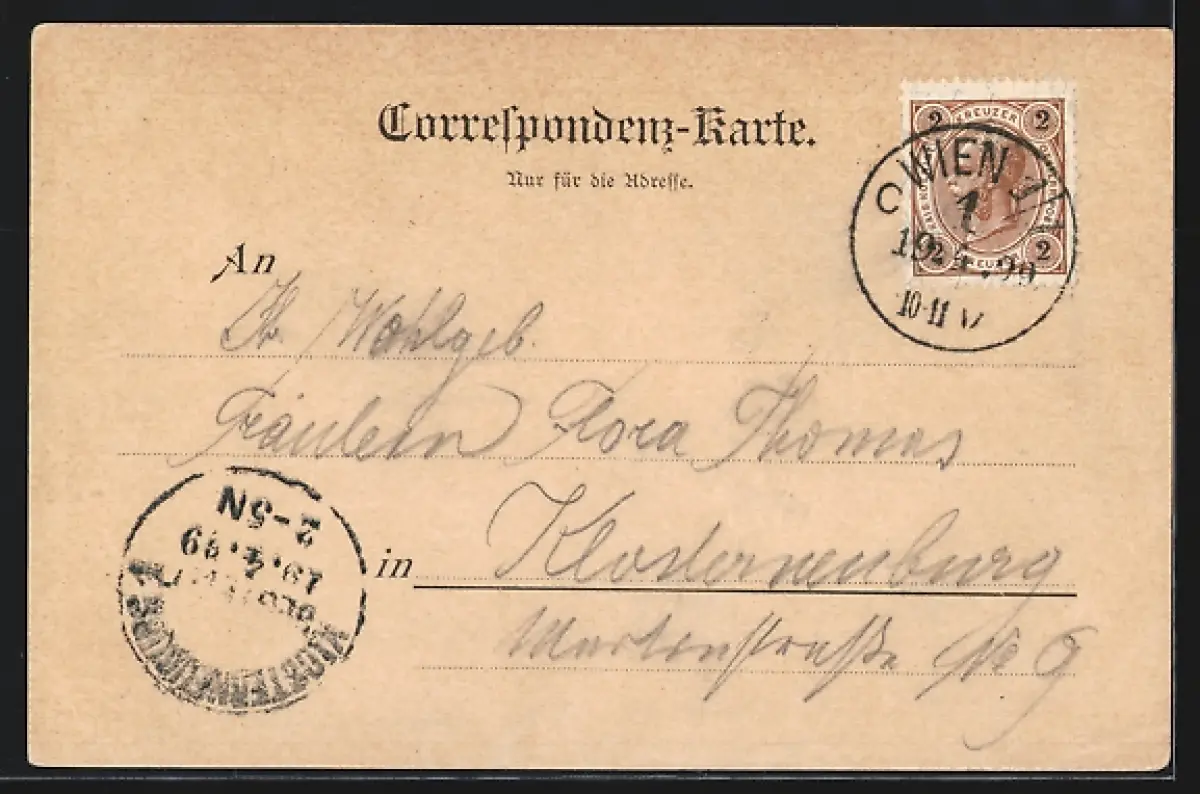 Correspondenz-Karte.
Nur für die Adresse.
2 KREUZER 2
2 KREUZER 2
WIEN
1
10-11 V
An
Wohlgeb.
Fräulein Flora Thomas
in Klosterneuburg
Martinstraße No 9
2-5N
19.4.99
KLOSTERNEUBURG
1